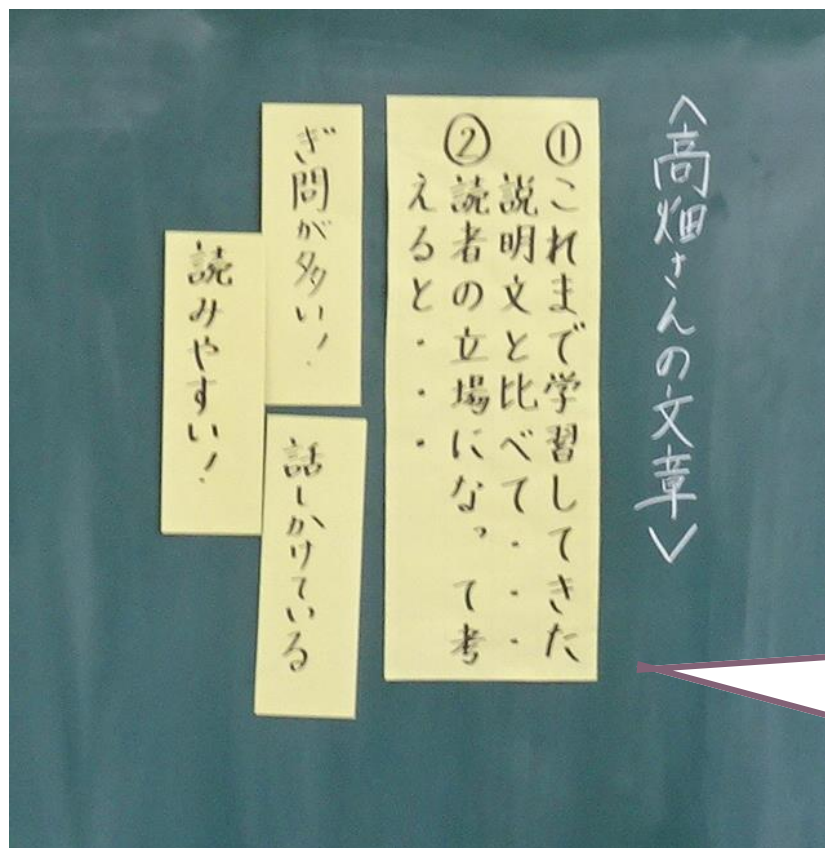 〈高畑さんの文章〉
①これまで学習してきた
説明文と比べて・・・
②読者の立場になって考
えると・・・
ぎ問が多い!
話しかけている
読みやすい!